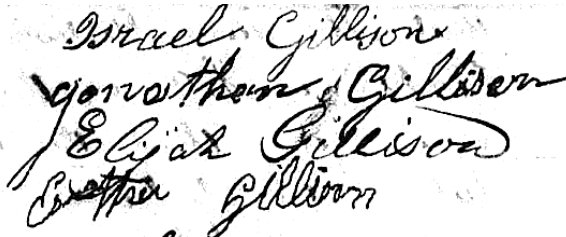 Israel Gillison
Jonathan Gillison
Elijah Gillison
Esther Gillison